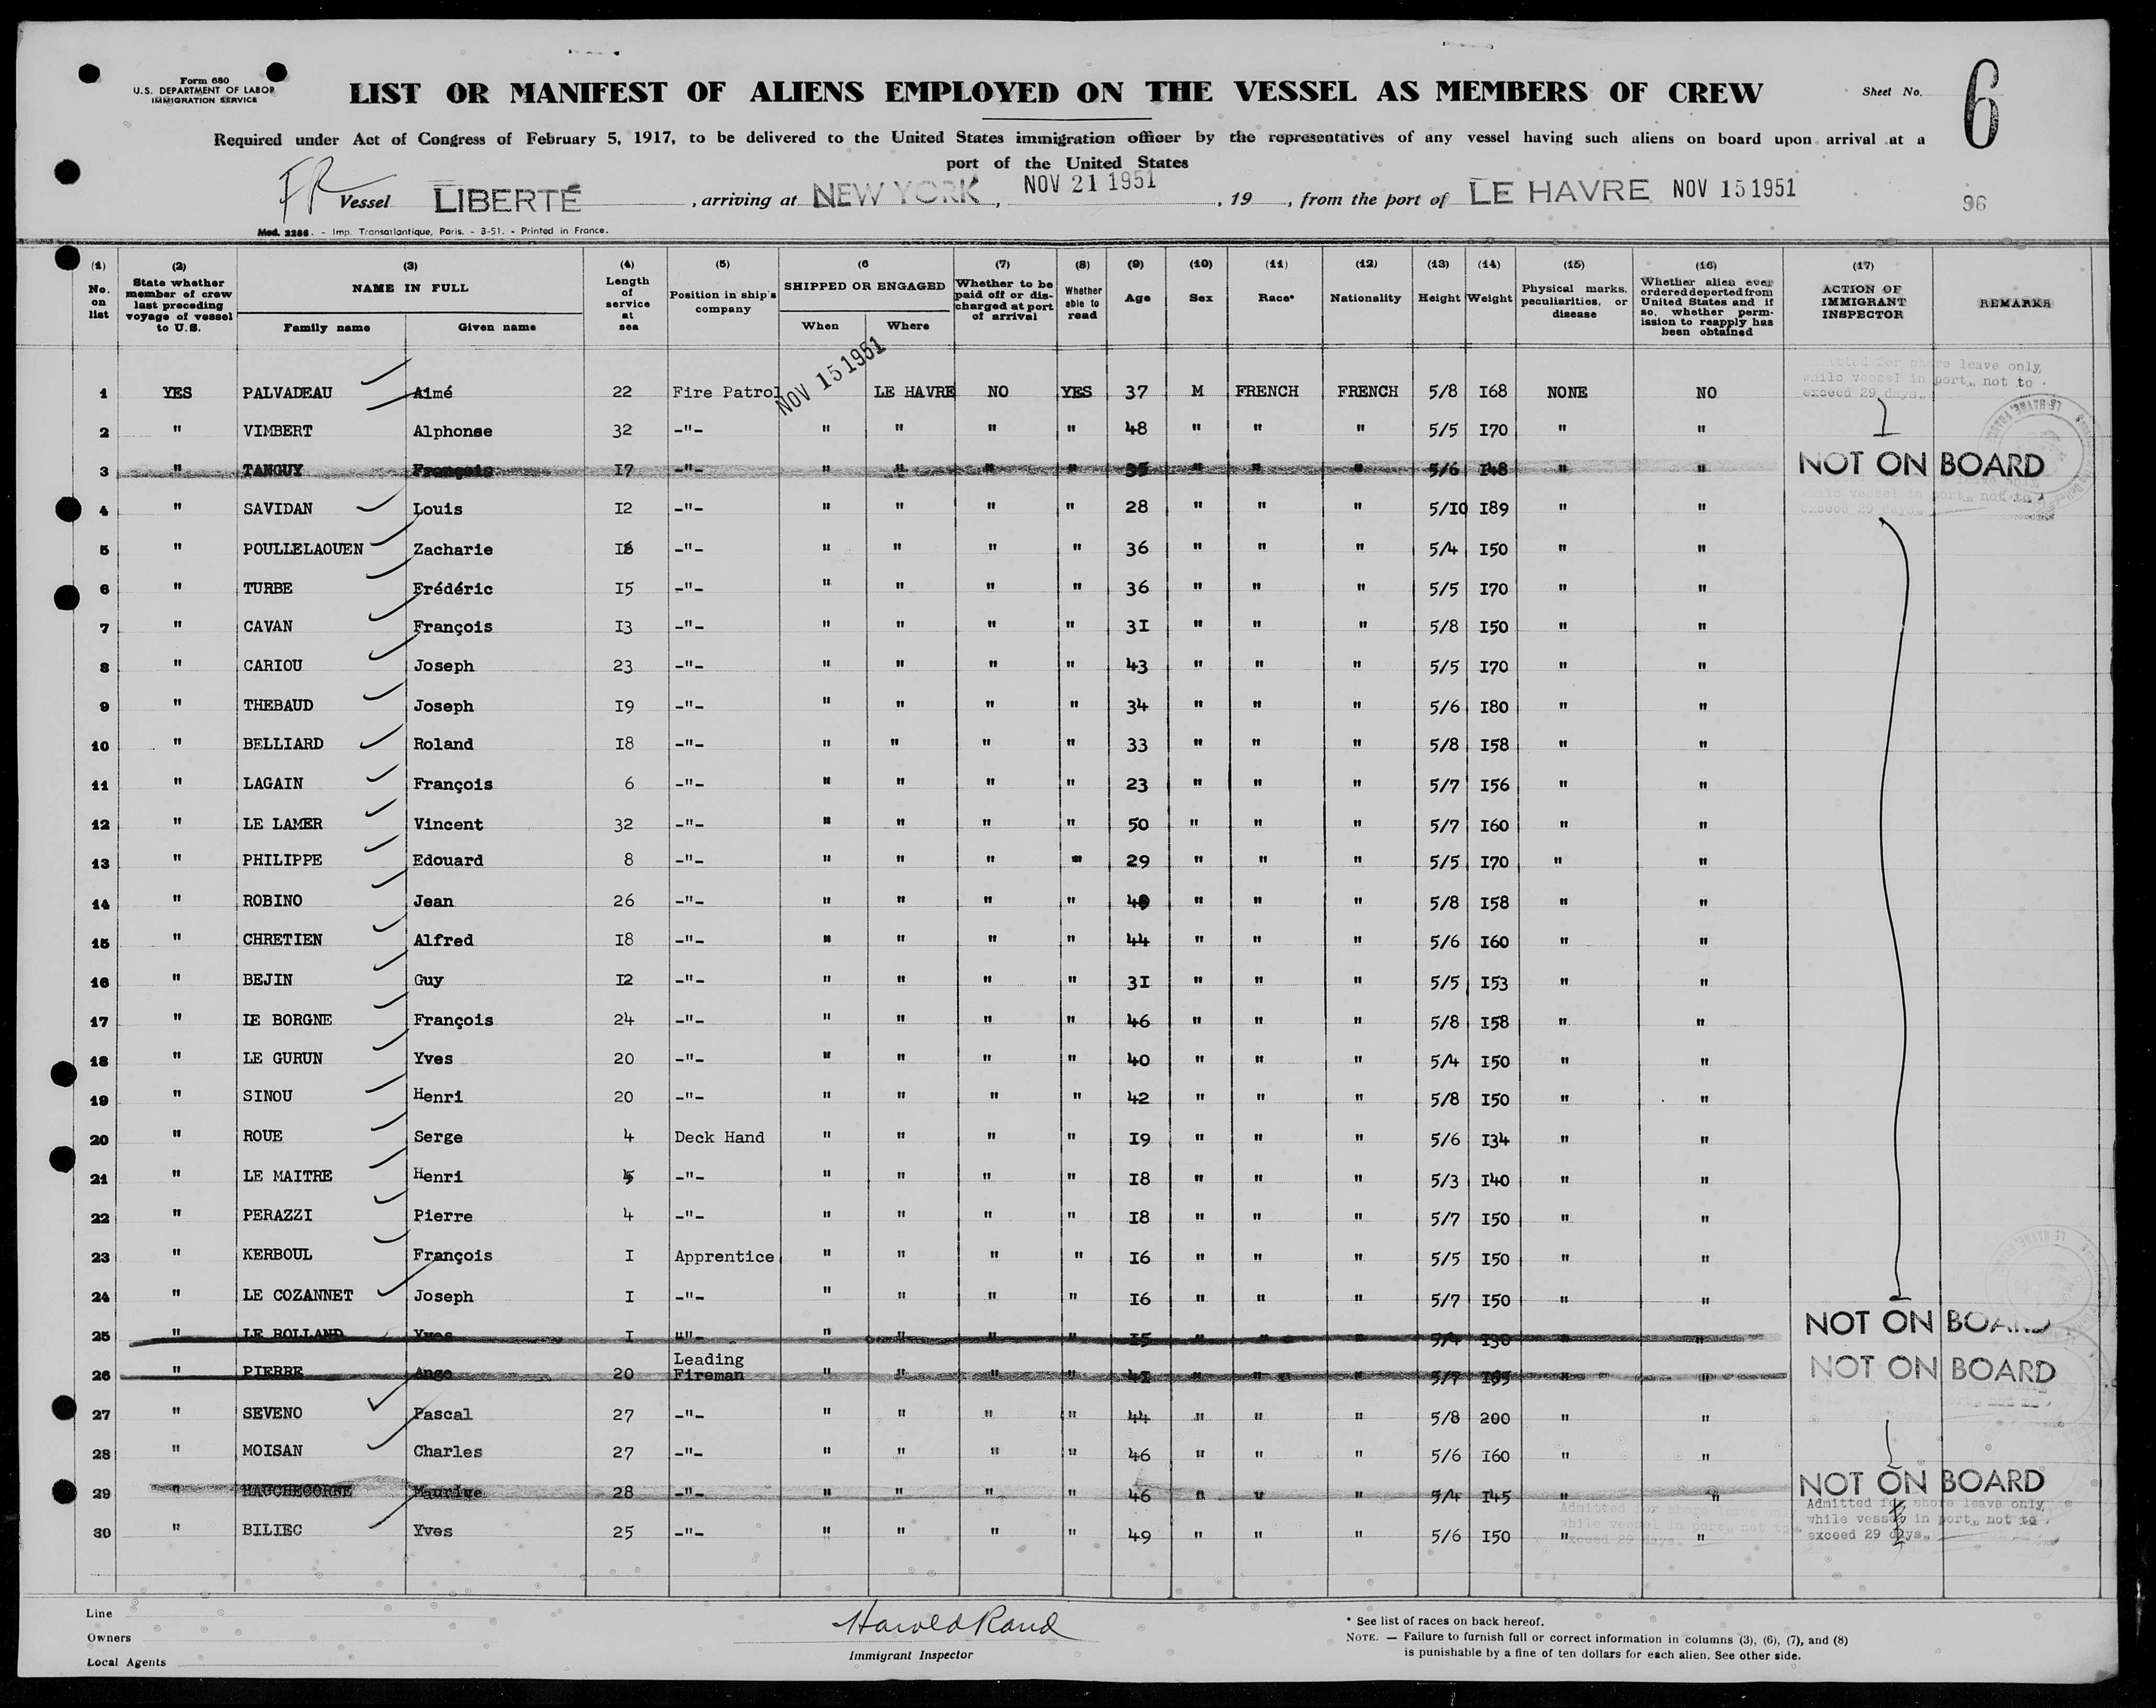 Form 680
U.S. DEPARTMENT OF LABOR
IMMIGRATION SERVICE
LIST OR MANIFEST OF ALIENS EMPLOYED ON THE VESSEL AS MEMBERS OF CREW
Sheet No. 6
Required under Act of Congress of February 5, 1917, to be delivered to the United States immigration officer by the representatives of any vessel having such aliens on board upon arrival at a
port of the United States
FR Vessel LIBERTÉ , arriving at NEW YORK , NOV 21 1951 , 19 , from the port of LE HAVRE NOV 15 1951
96
Mod. 2286. - Imp. Transatlantique, Paris. - 3-51. - Printed in France.
(1) No. on list (2) State whether member of crew last preceding voyage of vessel to U.S. (3) NAME IN FULL Family name Given name (4) Length of service at sea (5) Position in ship's company (6 SHIPPED OR ENGAGED When Where (7) Whether to be paid off or discharged at port of arrival (8) Whether able to read (9) Age (10) Sex (11) Race* (12) Nationality (13) Height (14) Weight (15) Physical marks, peculiarities, or disease (16) Whether alien ever ordered deported from United States and if so, whether permission to reapply has been obtained (17) ACTION OF IMMIGRANT INSPECTOR REMARKS
1 YES PALVADEAU Aimé 22 Fire Patrol NOV 15 1951 LE HAVRE NO YES 37 M FRENCH FRENCH 5/8 I68 NONE NO Admitted for shore leave only, while vessel in port, not to exceed 29 days.
2 " VIMBERT Alphonse 32 -"- " " " " 48 " " " 5/5 I70 " "
3 " TANGUY François I7 -"- " " " " 35 " " " 5/6 I48 " " NOT ON BOARD
4 " SAVIDAN Louis I2 -"- " " " " 28 " " " 5/I0 I89 " "
5 " POULLELAOUEN Zacharie I6 -"- " " " " 36 " " " 5/4 I50 " "
6 " TURBE Frédéric I5 -"- " " " " 36 " " " 5/5 I70 " "
7 " CAVAN François I3 -"- " " " " 3I " " " 5/8 I50 " "
8 " CARIOU Joseph 23 -"- " " " " 43 " " " 5/5 I70 " "
9 " THEBAUD Joseph I9 -"- " " " " 34 " " " 5/6 I80 " "
10 " BELLIARD Roland I8 -"- " " " " 33 " " " 5/8 I58 " "
11 " LAGAIN François 6 -"- " " " " 23 " " " 5/7 I56 " "
12 " LE LAMER Vincent 32 -"- " " " " 50 " " " 5/7 I60 " "
13 " PHILIPPE Edouard 8 -"- " " " " 29 " " " 5/5 I70 " "
14 " ROBINO Jean 26 -"- " " " " " " " 5/8 I58 " "
15 " CHRETIEN Alfred I8 -"- " " " " 44 " " " 5/6 I60 " "
16 " BEJIN Guy I2 -"- " " " " 3I " " " 5/5 I53 " "
17 " LE BORGNE François 24 -"- " " " " 46 " " " 5/8 I58 " "
18 " LE GURUN Yves 20 -"- " " " " 40 " " " 5/4 I50 " "
19 " SINOU Henri 20 -"- " " " " 42 " " " 5/8 I50 " "
20 " ROUE Serge 4 Deck Hand " " " " I9 " " " 5/6 I34 " "
21 " LE MAITRE Henri 5 -"- " " " " I8 " " " 5/3 I40 " "
22 " PERAZZI Pierre 4 -"- " " " " I8 " " " 5/7 I50 " "
23 " KERBOUL François I Apprentice " " " " I6 " " " 5/5 I50 " "
24 " LE COZANNET Joseph I -"- " " " " I6 " " " 5/7 I50 " "
25 " LE ROLLAND Yves I ""- " " " " I5 " " " 5/4 I30 " " NOT ON BOARD
26 " PIERRE Ange 20 Leading Fireman " " " " 4I " " " 5/7 " " NOT ON BOARD
27 " SEVENO Pascal 27 -"- " " " " 44 " " " 5/8 200 " "
28 " MOISAN Charles 27 -"- " " " " 46 " " " 5/6 I60 " "
29 " HAUCHECORNE Maurice 28 -"- " " " " 46 " " " 5/4 I45 " " NOT ON BOARD
30 " BILIEC Yves 25 -"- " " " " 49 " " " 5/6 I50 " " Admitted for shore leave only, while vessel in port, not to exceed 29 days.
Line
Owners
Local Agents
Harold Rand
Immigrant Inspector
* See list of races on back hereof.
NOTE. — Failure to furnish full or correct information in columns (3), (6), (7), and (8)
is punishable by a fine of ten dollars for each alien. See other side.